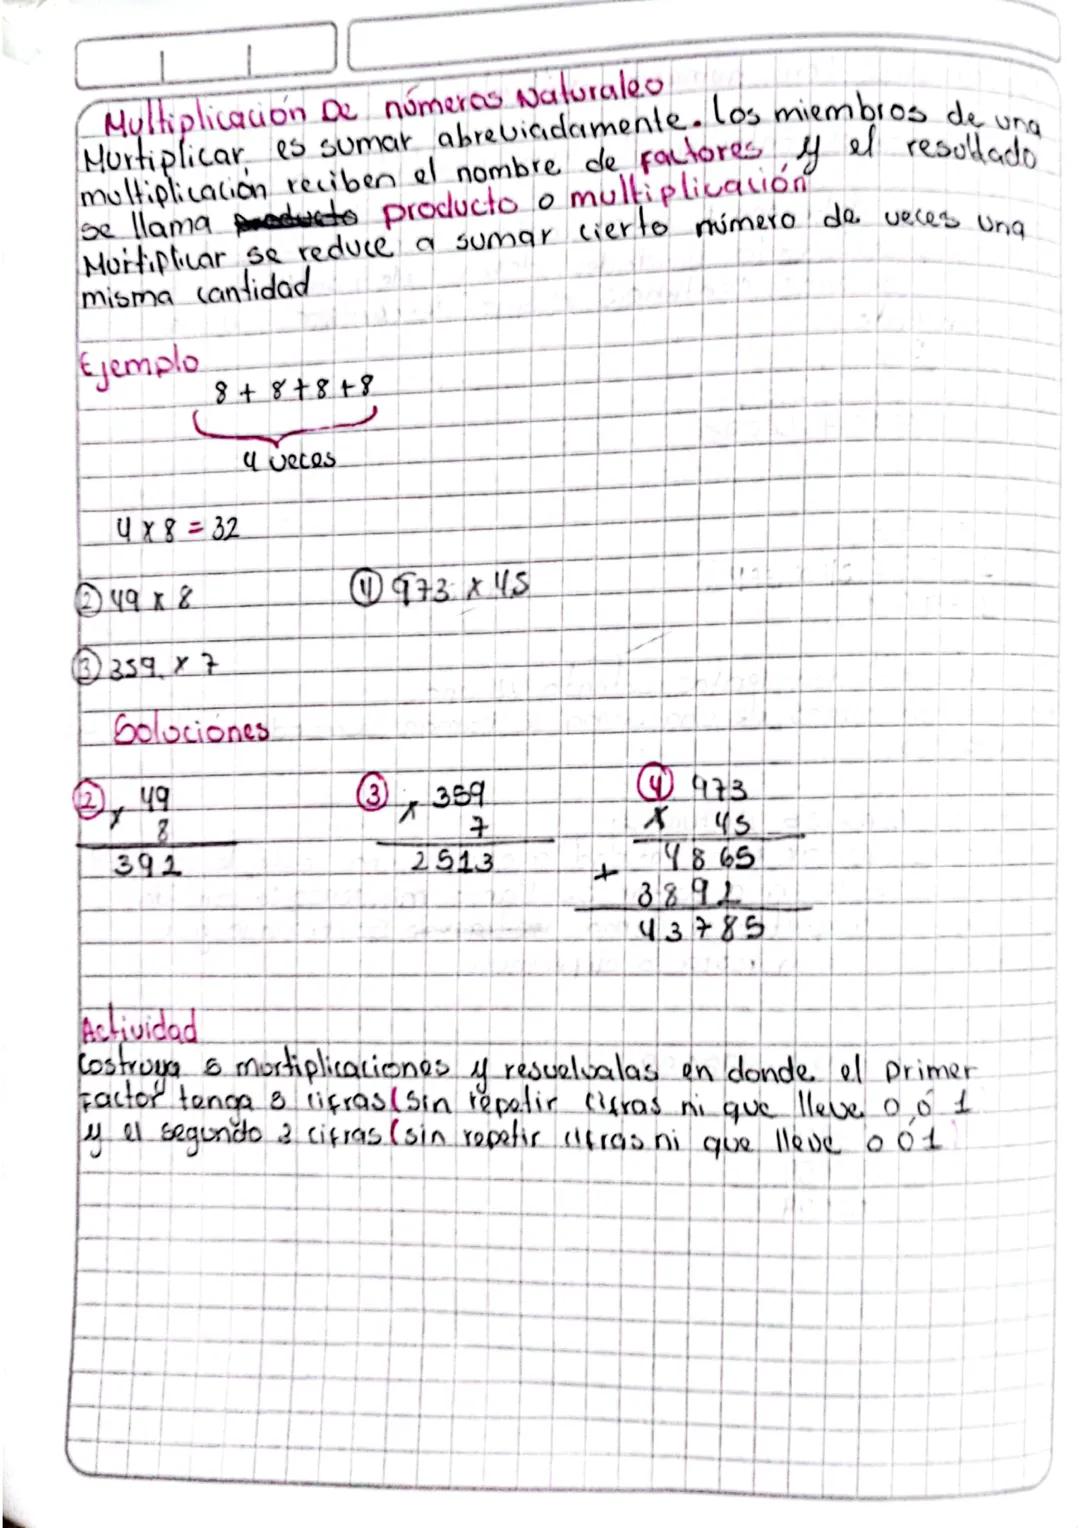 Multiplicación De números Naturales
Murtiplicar es sumar abreviadamente. Los miembros de una
multiplicación reciben el nombre de factores y el resultado
se llama producto producto o multiplicación
Murtiplicar se reduce a sumar cierto número de veces una
misma cantidad
Ejemplo
8 + 8 + 8 + 8
4 veces
4 x 8 = 32
② 49 x 8 ④ 973 x 45
③ 359 x 7
Soluciones
② 49 ③ 359 ④ 973
x 8 x 7 x 45
392 2513 4865
+ 3892
43785
Actividad
Costruya 5 mortiplicaciones y resuelvalas en donde el primer
Factor tenga 3 cifras (sin repetir cifras ni que lleve 0, ó 1
y el segundo 2 cifras (sin repetir cifras ni que lleve 0 ó 1